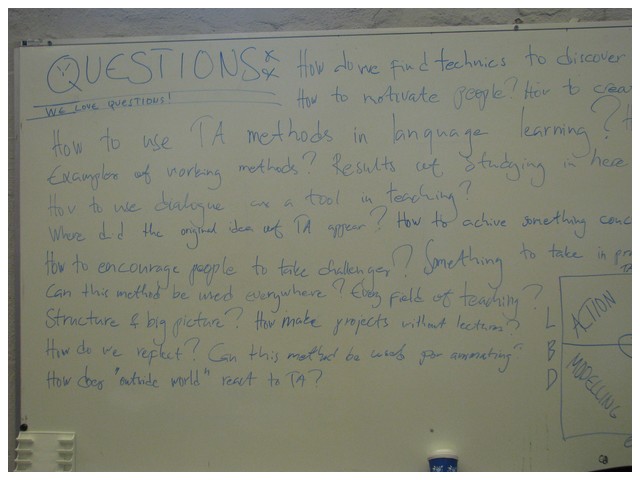 QUESTIONS:
How do we find technics to discover
WE LOVE QUESTIONS!
How to motivate people? How to crea
How to use TA methods in language learning?
Examples of working methods? Results of studying in here
How to use dialogue as a tool in teaching?
Where did the original idea of TA appear? How to achive something conc
How to encourage people to take challenges? Something to take in pr
Can this method be used everywhere? Every field of teaching?
Structure & big picture? How make projects without lectures?
How do we reflect? Can this method be used for animating
How does "outside world" react to TA?
L
B
D
ACTION
MODELLING